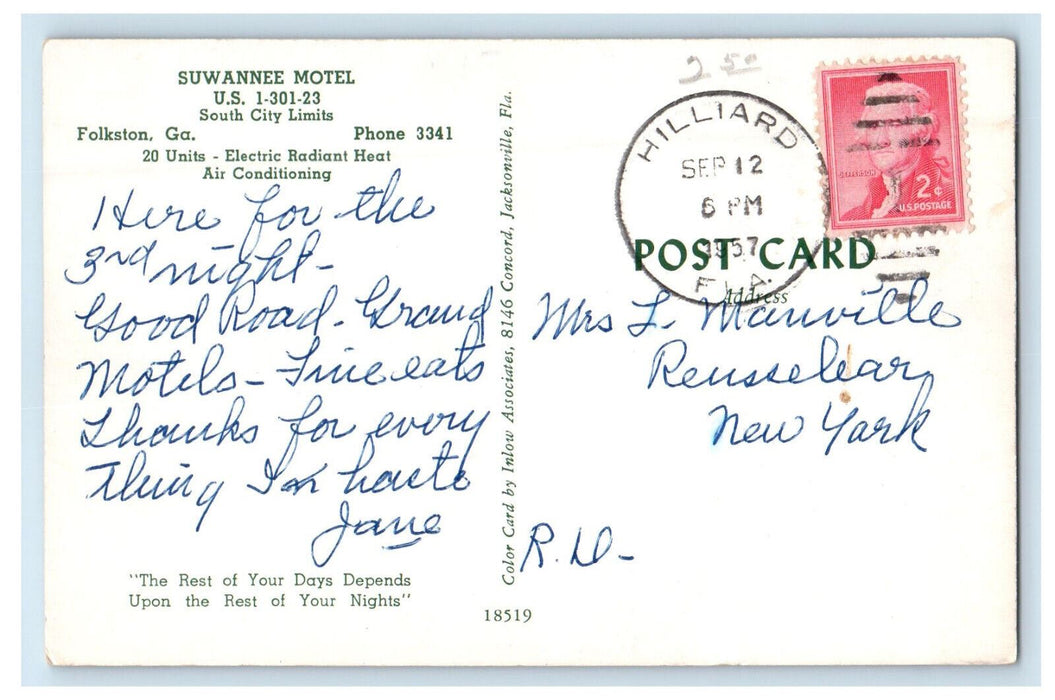 SUWANNEE MOTEL
U.S. 1-301-23
South City Limits
Folkston, Ga. Phone 3341
20 Units - Electric Radiant Heat
Air Conditioning
Here for the
3rd night -
Good Road - Grand
Motels - Fine eats
Thanks for every
thing In haste
Jane
"The Rest of Your Days Depends
Upon the Rest of Your Nights"
Color Card by Inlow Associates, 8146 Concord, Jacksonville, Fla.
18519
2 50
HILLIARD
SEP 12
6 PM
1957
FLA
JEFFERSON
2¢
U.S. POSTAGE
POST CARD
Address
Mrs L. Manville
Rensselear
New York
R.D-